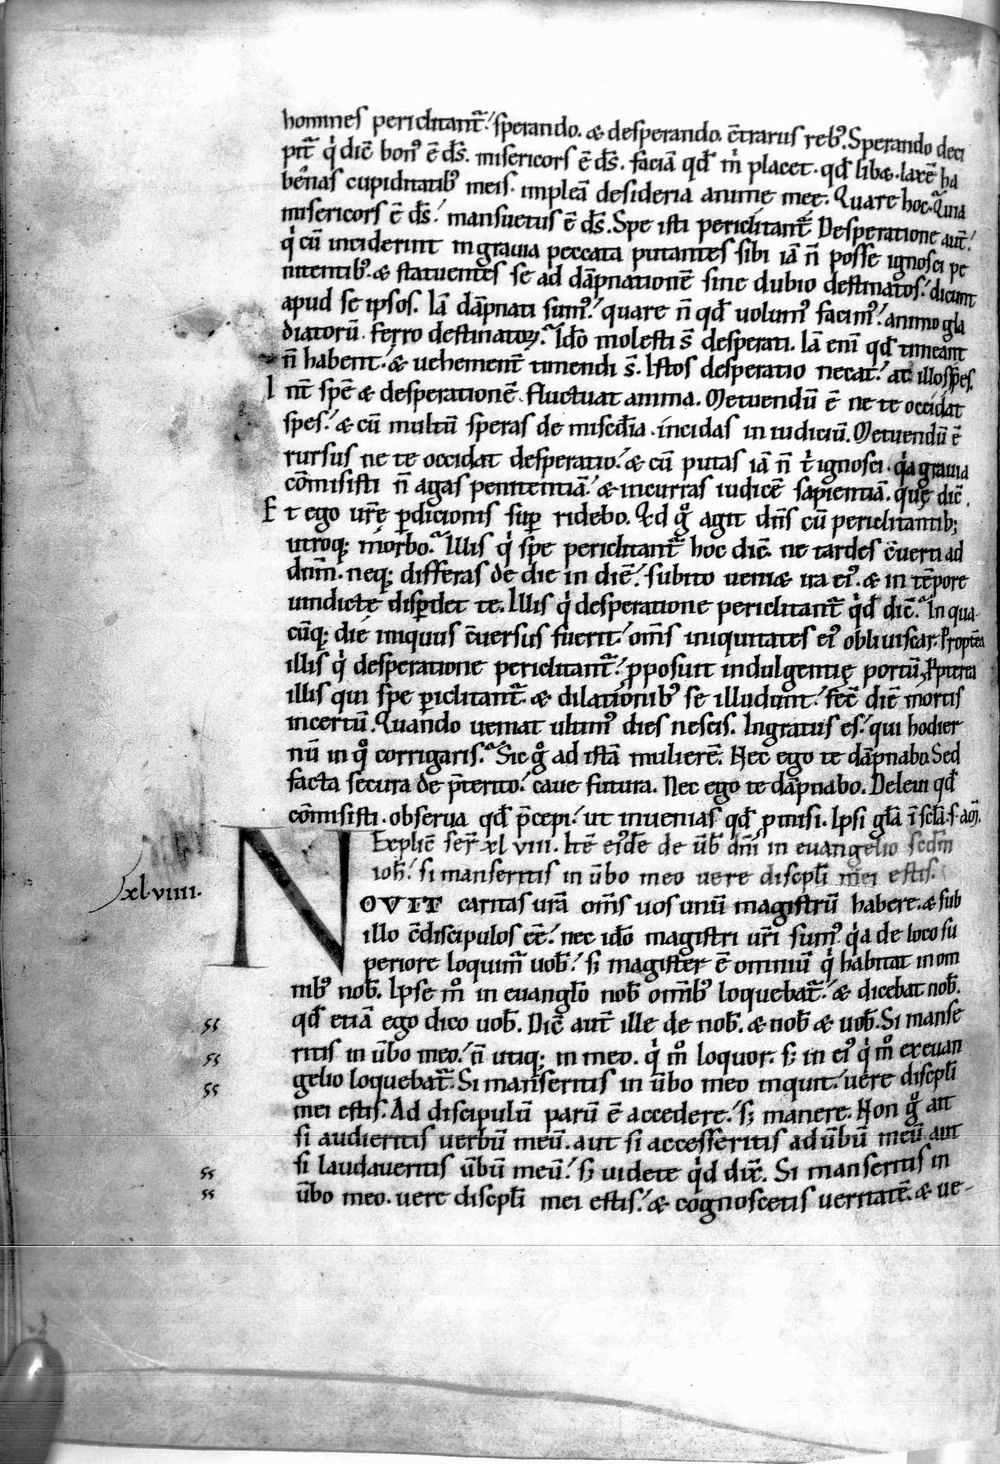 homines periclitant᷑.' sperando. & desperando. c̄trariis reb᷒. Sperando deci
pit᷑ q̇ dic̄ bon᷒ ē d̄s. misericors ē d̄s. faciā qd̄ ṁ placet. qd̄ lib&. laxē ha
benas cupiditatib᷒ meis. impleā desideria anime mee. Quare hoc. Quia
misericors ē d̄s.' mansuetus ē d̄s. Spe isti periclitant᷑. Desperatione aut̄.'
q̇ cū inciderint in gravia peccata putantes sibi iā n̄ posse ignosci pe
nitentib᷒. & statuentes se ad dāpnationē sine dubio destinatos.' dicunt
apud se ipsos. Iā dāpnati sum᷒.' quare n̄ qd̄ uolum᷒ facim᷒.' animo gla
diatorū. ferro destinatoꝝ. Idō molesti s̄ desperati. Iā eni qd̄ timeant
n̄ habent.' & uehement̄ timendi s̄. Istos desperatio necat.' at illos spes.
Int̄ spē & desperationē fluctuat anima. Metuendū ē ne te occidat
spes.' & cū multū speras de misc̄dia. incidas in iudiciū. Metuendū ē
rursus ne te occidat desperatio.' & cū putas iā n̄ ṫ ignosci. q̇a gravia
cōmisisti n̄ agas penitentiā.' & incurras iudicē sapientiā. quę dic̄.
Et ego ur̄ę ꝑdicionis suꝑ ridebo. Qd g̊ agit dn̄s cū periclitantib;
utroq; morbo. Illis q̇ spe periclitant᷑ hoc dic̄. ne tardes c̄uerti ad
dnm̄. neq; differas de die in diē.' subito ueni& ira ei᷒. & in tēpore
uindictę disꝑdet te. Illis q̇ desperatione periclitant᷑ q̇d dic̄. In qua
cūq; die iniquus c̄uersus fuerit.' oms̄ iniquitates ei᷒ obliuiscar. Propt̄ea
illis q̇ desperatione periclitant᷑.' ꝓposuit indulgentię portū. Ꝓpterea
illis qui spe ꝑiclitant᷑. & dilationib᷒ se illudunt.' fec̄ diē mortis
incertū. Quando ueniat ultim᷒ dies nescis. Ingratus es.' qui hodier
nū in q̊ corrigaris. Sic g̊ ad istā mulierē. Nec ego te dāpnabo. Sed
facta secura de p̄terito.' caue futura. Nec ego te dāpnabo. Delevi qd̄
cōmisisti. observa qd̄ p̄cepi.' ut inuenias qd̄ ꝓmisi. Ipsi gl̄a ī scl̄a. s. am̄.
Explic̄ ser̄ xl viii. Itē ei᷒dē de ūb dn̄i in euangelio scdm̄
ioh̄.' si manseritis in ūbo meo vere discipl̄i mei estis.
xl·viiii.
NOVIT caritas urā oms̄ uos unū magistrū habere. & sub
illo c̄discipulos eē.' nec idō magistri ur̄i sum᷒. q̇a de loco su
periore loquim᷑ uob̄.' s; magister ē omniū q̇ habitat in om
nib᷒ nob̄. Ipse m̊ in euangl̄o nob̄ omīb᷒ loquebat᷑.' & dicebat nob̄.
qd̄ etiā ego dico uob̄. Dic̄ aut̄ ille de nob̄. & nob̄ & uob̄. Si manse
ritis in ūbo meo.' n̄ utiq; in meo. q̇ m̊ loquor. s; in ei᷒ q̇ m̊ ex euan
gelio loquebat᷑. Si manseritis in ūbo meo inquit.' uere discipl̄i
mei estis. Ad discipulū parū ē accedere.' s; manere. Non g̊ ait
si audieritis uerbū meū. aut si accesseritis ad ūbū meū aut
si laudaueritis ūbū meū.' s; uidete q̇d dix̄. Si manseritis in
ūbo meo. uere discipl̄i mei estis.' & cognoscetis ueritatē. & ue-